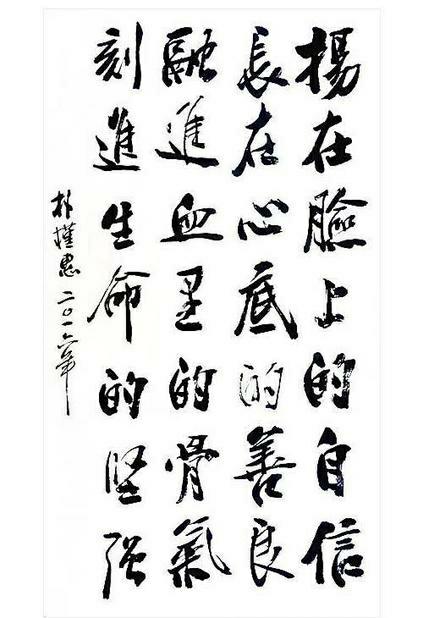 揚在臉上的自信
長在心底的善良
融進血里的骨氣
刻進生命的坚强
朴槿惠二〇一六年